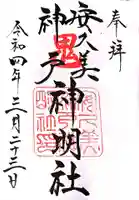 奉拝
安久美
神戸
神明社
鬼
令和四年二月二十三日